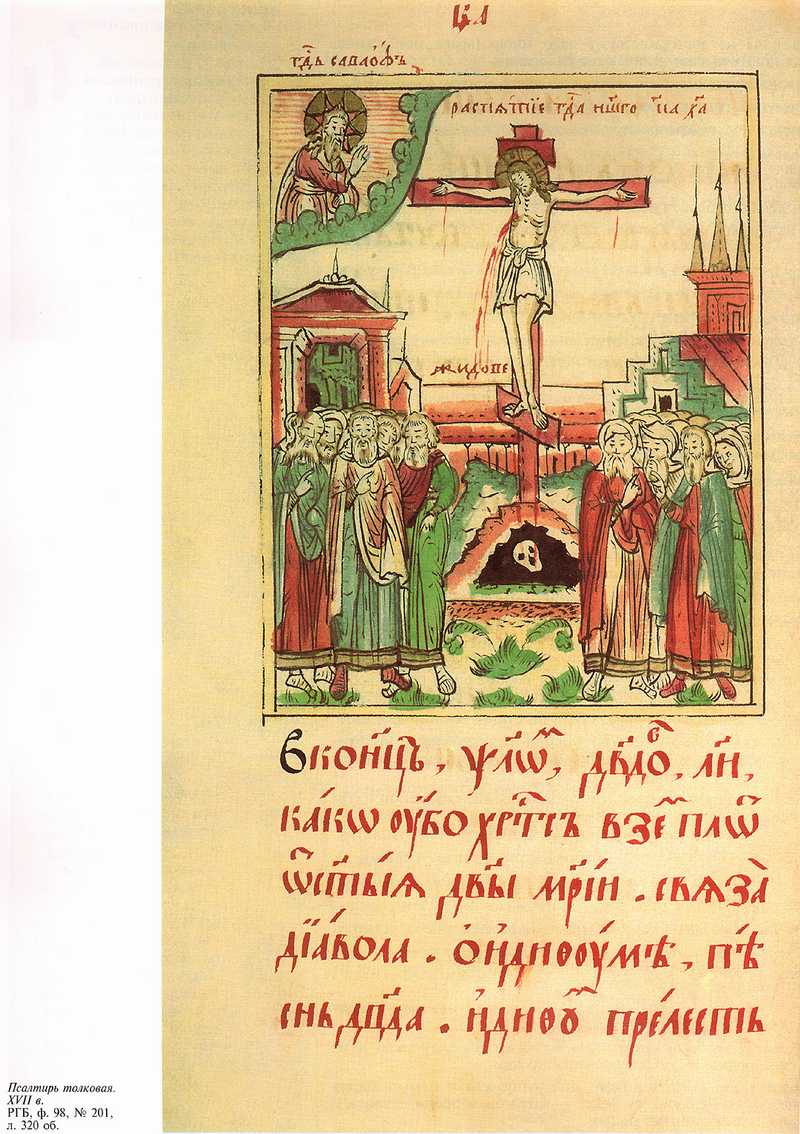 гд҇ь саваоѳъ
распѧтїе гд҇а нш҃го і҃са х҇а
жидове
В конⷰ҇ъ, ѱⷧ҇ѡⷨ, дв҃дⷪ҇, лн,
како ѹбо хрⷭ҇тосъ взеⷨ плѡⷮ
ѿ ст҃ыѧ дв҃ы мр҃іи . свѧзⷶ
дїавола . о идиѳѹмѣ, пѣ
снь дв҃да . идиѳѹⷨ прелесть
Псалтирь толковая.
XVII в.
РГБ, ф. 98, № 201,
л. 320 об.